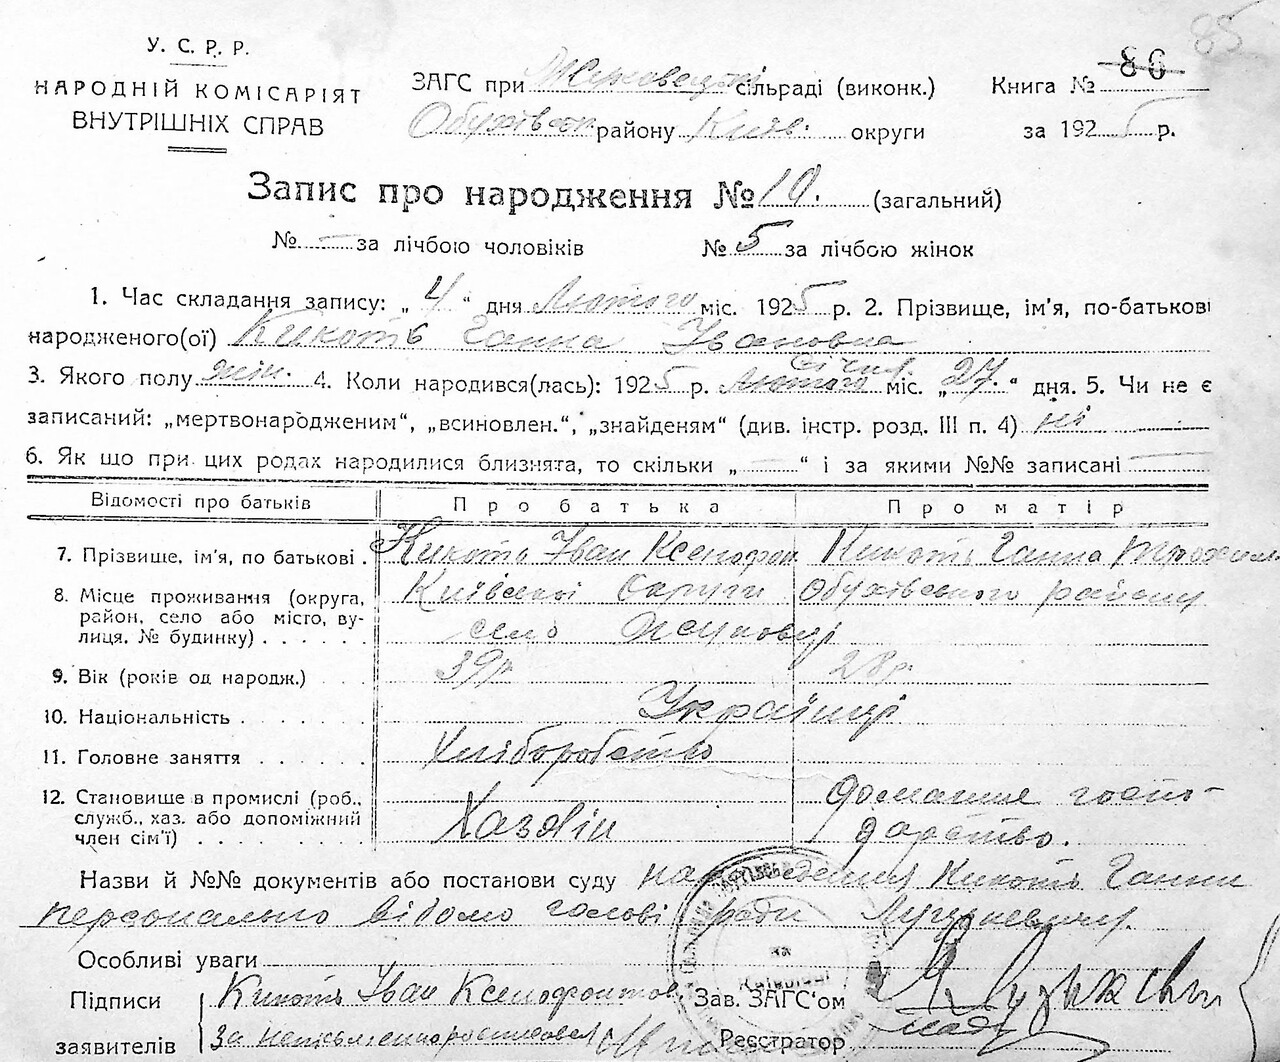 85
У. С. Р. Р.
НАРОДНІЙ КОМІСАРІЯТ
ВНУТРІШНІХ СПРАВ
ЗАГС при сільраді (виконк.) Книга № 86
Обухівськ. району Київ. округи за 1925 р.
Запис про народження № 10. (загальний)
№ — за лічбою чоловіків № 5 за лічбою жінок
1. Час складання запису: „4“ дня Лютого міс. 1925 р. 2. Прізвище, ім'я, по-батькові
народженого(ої) Кикоть Ганна Івановна
січня
3. Якого полу жін. 4. Коли народився(лась): 1925 р. Лютого міс. „27.“ дня. 5. Чи не є
записаний: „мертвонародженим“, „всиновлен.“, „знайденям“ (див. інстр. розд. III п. 4) ні
6. Як що при цих родах народилися близнята, то скільки „—“ і за якими №№ записані —
Відомості про батьків Про батька Про матір
7. Прізвище, ім'я, по батькові . Кикоть Іван Ксенофон Кикоть Ганна
8. Місце проживання (округа, район, село або місто, вулиця, № будинку) Київської Округи Обухівського району
село
9. Вік (років од народж.) 39 р. 28 р.
10. Національність Українці
11. Головне заняття Хліборобство
12. Становище в промислі (роб., служб., хаз. або допоміжний член сім'ї) Хазяїн домашнє господарство.
Назви й №№ документів або постанови суду народження Кикоть Ганни
персонально відомо голові ради
Особливі уваги
Підписи Кикоть Іван Ксенофонтов Зав. ЗАГС'ом
заявителів за неписьменного Реєстратор